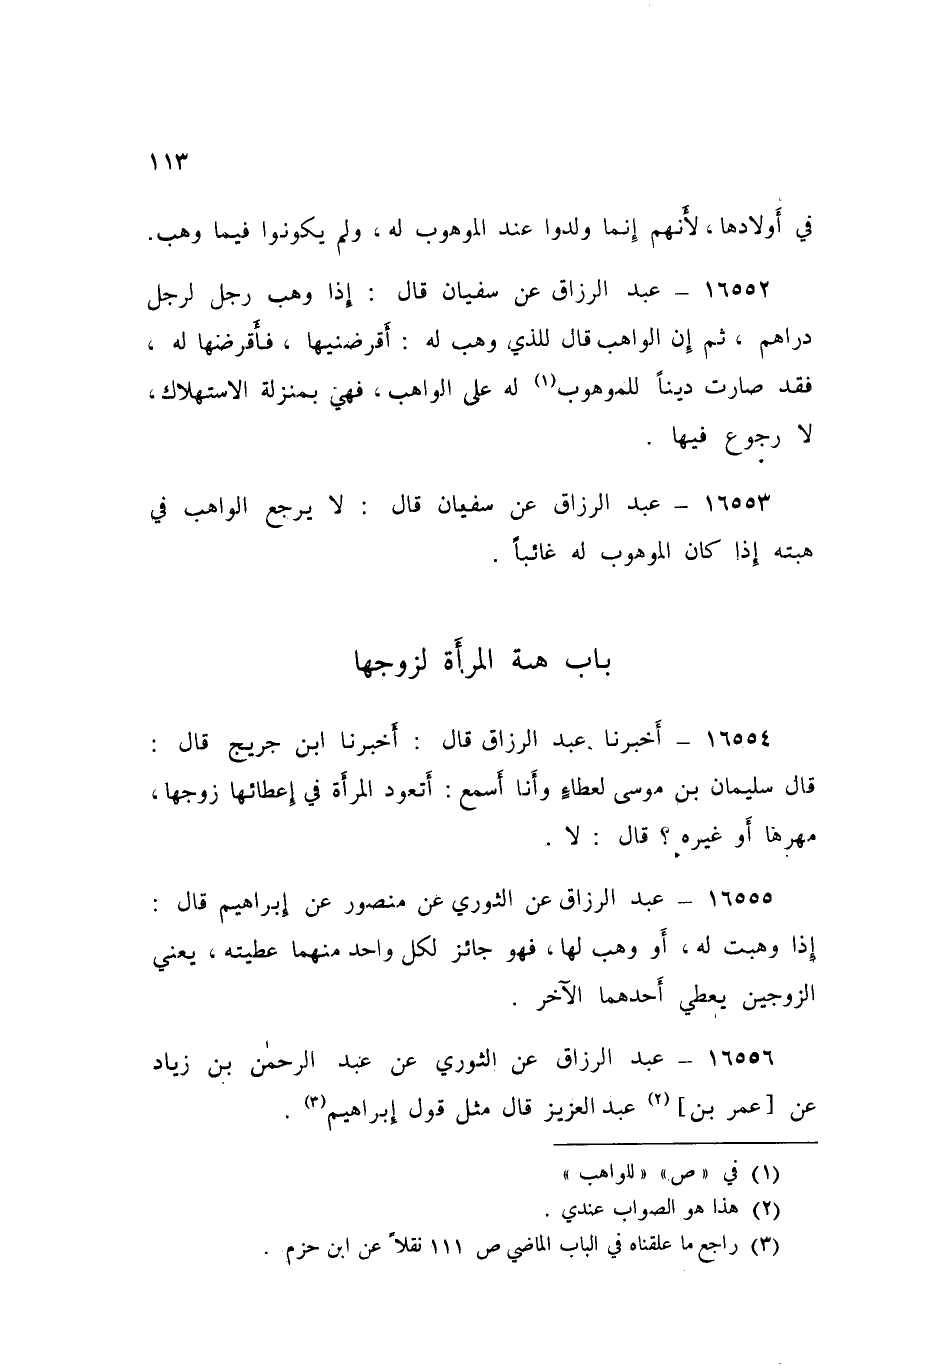 ١١٣
في أَولادها ، لأَنهم إِنما ولدوا عند الموهوب له ، ولم يكونوا فيما وهب .
١٦٥٥٢ – عبد الرزاق عن سفيان قال : إِذا وهب رجل لرجل
دراهم ، ثم إِن الواهب قال للذي وهب له : أَقرضنيها ، فأَقرضها له ،
فقد صارت ديناً للموهوب(١) له على الواهب ، فهي بمنزلة الاستهلاك ،
لا رجوع فيها .
١٦٥٥٣ – عبد الرزاق عن سفيان قال : لا يرجع الواهب في
هبته إِذا كان الموهوب له غائباً .
باب هبة المرأَة لزوجها
١٦٥٥٤ – أَخبرنا عبد الرزاق قال : أَخبرنا ابن جريج قال :
قال سليمان بن موسى لعطاءٍ وأَنا أَسمع : أَتعود المرأَة في إِعطائها زوجها ،
مهرها أَو غيره ؟ قال : لا .
١٦٥٥٥ – عبد الرزاق عن الثوري عن منصور عن إِبراهيم قال :
إِذا وهبت له ، أَو وهب لها ، فهو جائز لكل واحد منهما عطيته ، يعني
الزوجين يعطي أَحدهما الآخر .
١٦٥٥٦ – عبد الرزاق عن الثوري عن عبد الرحمٰن بن زياد
عن [ عمر بن ] (٢) عبد العزيز قال مثل قول إِبراهيم(٣) .
(١) في « ص » « للواهب »
(٢) هذا هو الصواب عندي .
(٣) راجع ما علقناه في الباب الماضي ص ١١١ نقلاً عن ابن حزم .